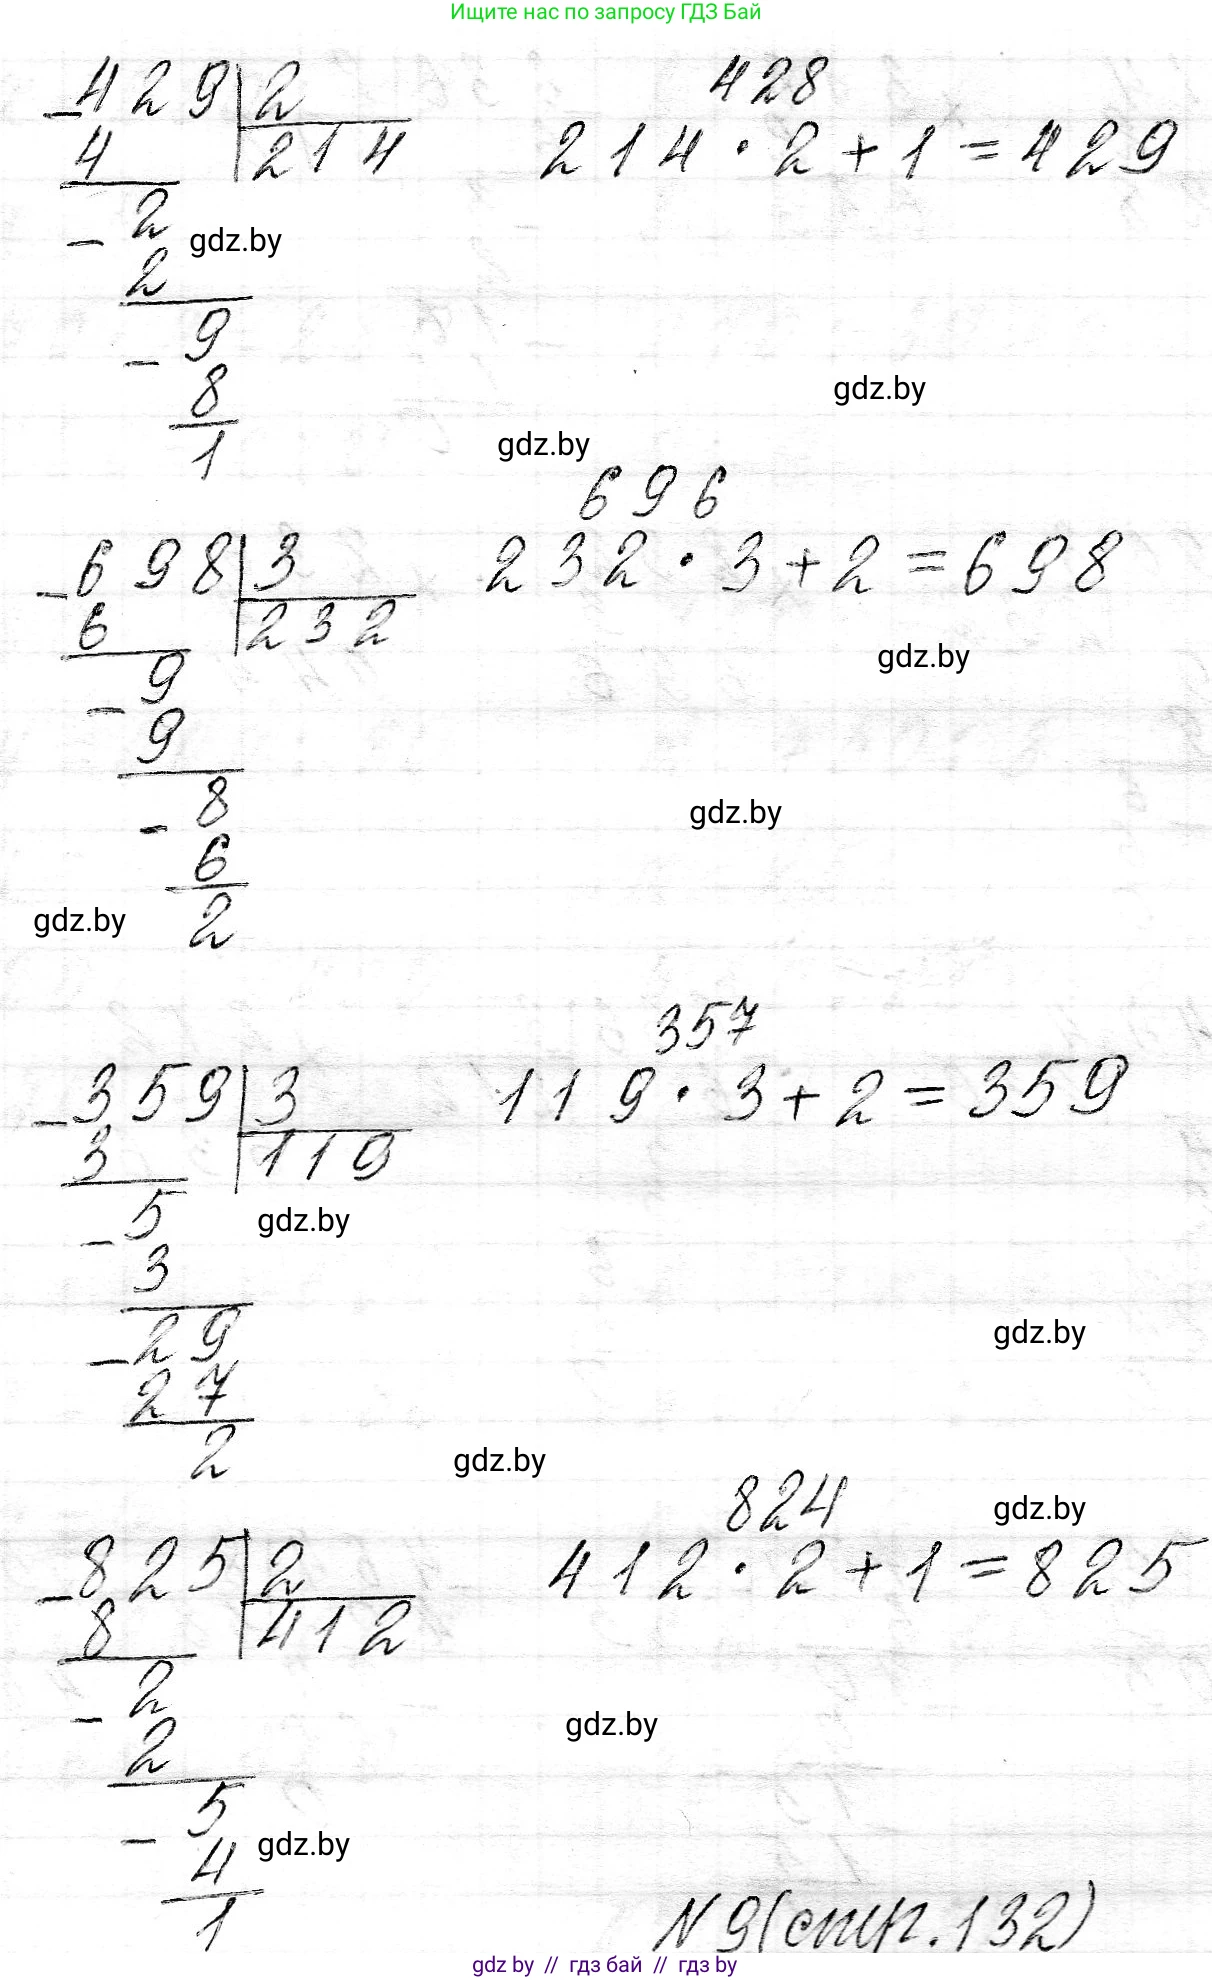 Ищите нас по запросу ГДЗ Бай
428
-429|2
4 214
214 · 2 + 1 = 429
-2
gdz.by
2
-9
8
gdz.by
1
gdz.by
696
-698|3
6 232
232 · 3 + 2 = 698
gdz.by
-9
9
-8
gdz.by
6
gdz.by
2
357
-359|3
3 119
119 · 3 + 2 = 359
-5
gdz.by
3
-29
gdz.by
27
2
gdz.by
824
gdz.by
-825|2
8 412
412 · 2 + 1 = 825
-2
gdz.by
2
-5
4
gdz.by
1
N 9(стр. 132)
gdz by // гдз бай // гдз by